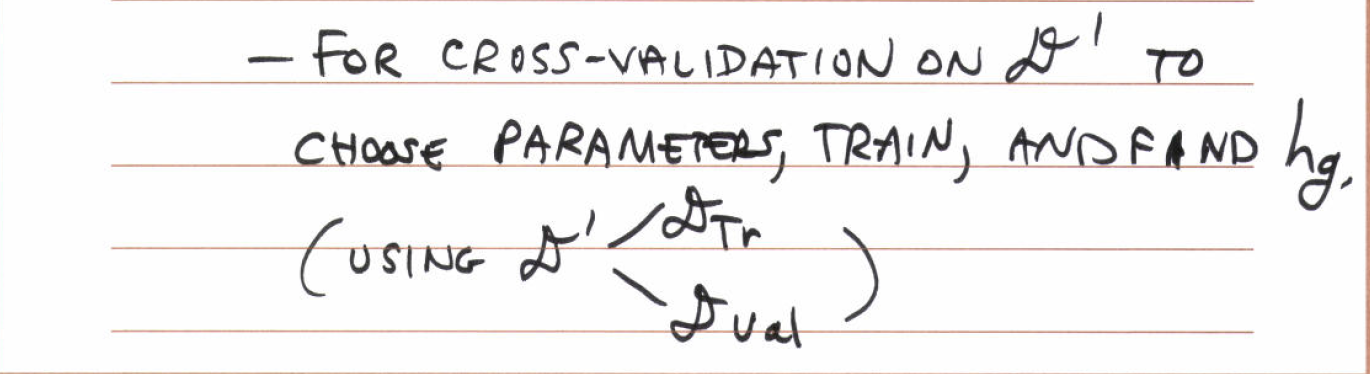 – FOR CROSS-VALIDATION ON 𝒟' TO
CHOOSE PARAMETERS, TRAIN, AND FIND hg.
(USING 𝒟' 𝒟Tr
𝒟Val )